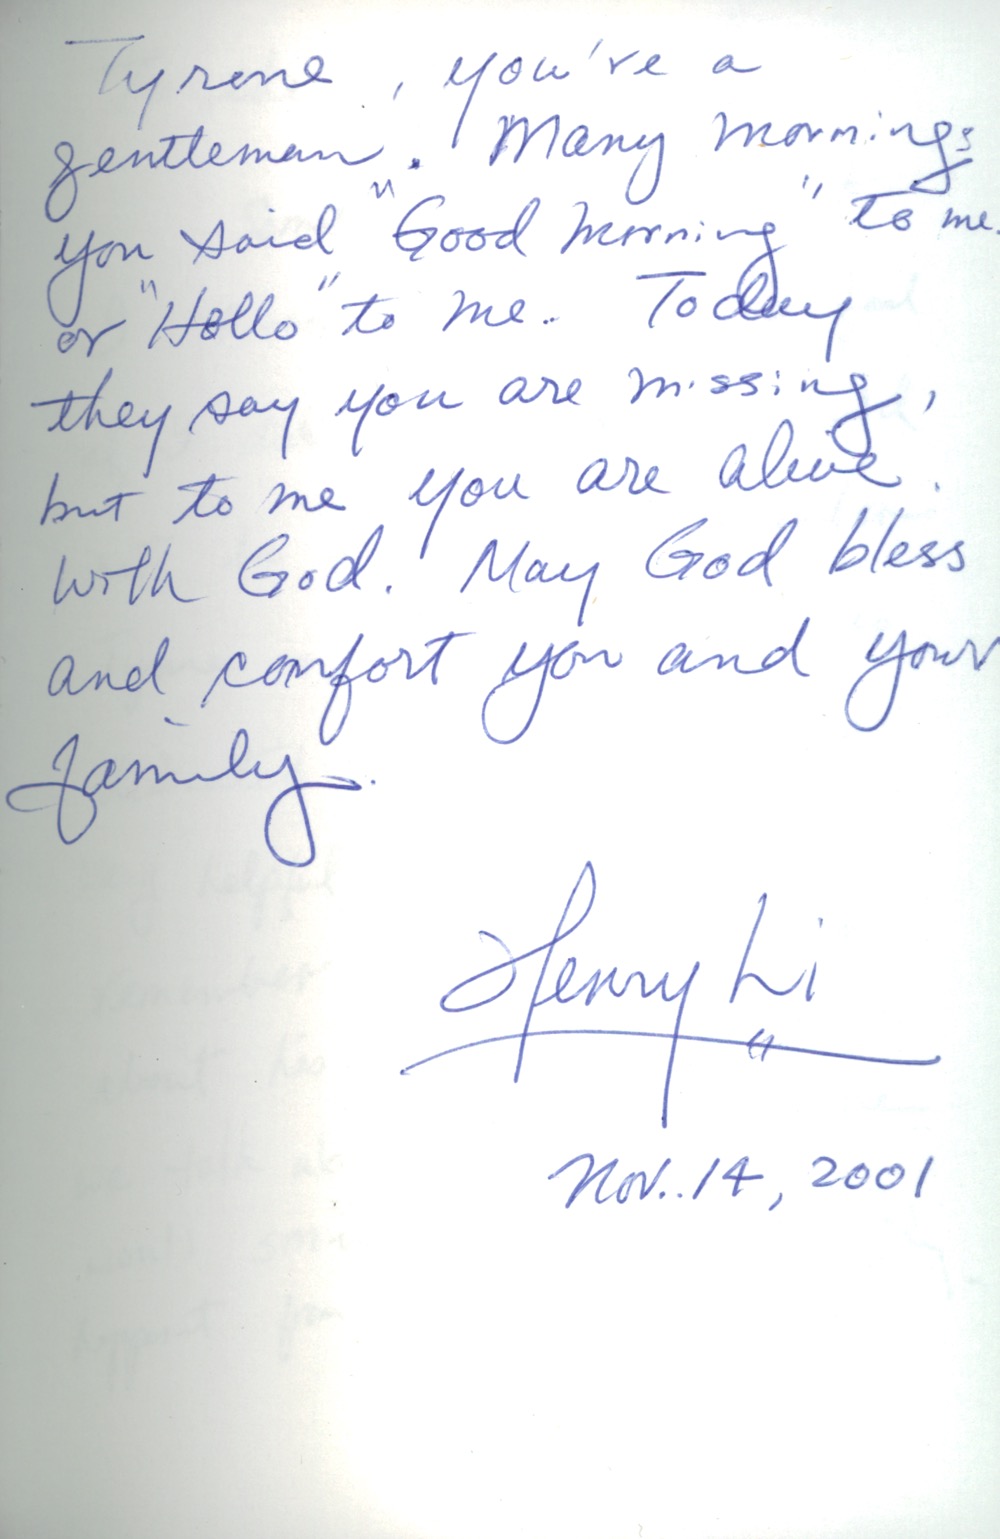 Tyrone, you're a
gentleman. Many mornings
you said "Good morning" to me.
or "Hello" to me. Today
they say you are missing,
but to me you are alive.
with God. May God bless
and comfort you and your
family.
Henry Li
Nov. 14, 2001
helpful
about his